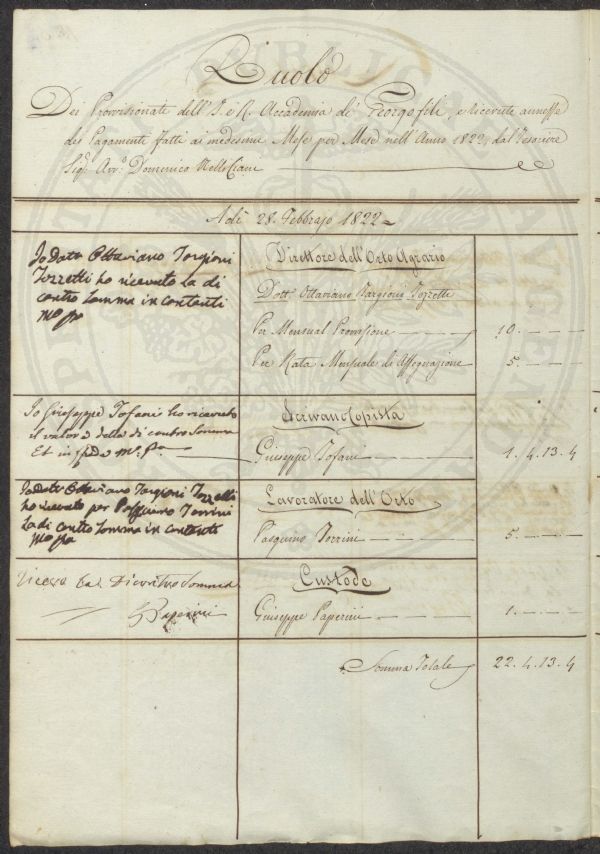 Ruolo
Dei Provvisionati dell'I. e R. Accademia de' Georgofili, e ricevute annesse
dei Pagamenti fatti ai medesimi Mese per Mese nell'Anno 1822, dal Tesoriere
Sig.r Avv.o Domenico Nelli Ciani
Adì 28. Febbrajo 1822
Io Dott Ottaviano Targioni
Tozzetti ho ricevuto la di
contro somma in contanti
Mo pa
Direttore dell'Orto Agrario
Dott. Ottaviano Targioni Tozzetti
Per Mensual Provvisione 10. — —
Per Rata Mensuale di Assegnazione 5. — —
Io Giuseppe Tofani ho ricevuto
il valore della di contro Somma
Et in fede Mo. Pa.
Scrivano Copista
Giuseppe Tofani 1. 4. 13. 4
Io Dott Ottaviano Targioni Tozzetti
ho ricevuto per Pasquino Torrini
La di contro somma in contanti
Mo pa
Lavoratore dell'Orto
Pasquino Torrini 5. — —
Somma
G Paperini
Custode
Giuseppe Paperini 1. — —
Somma Totale 22. 4. 13. 4